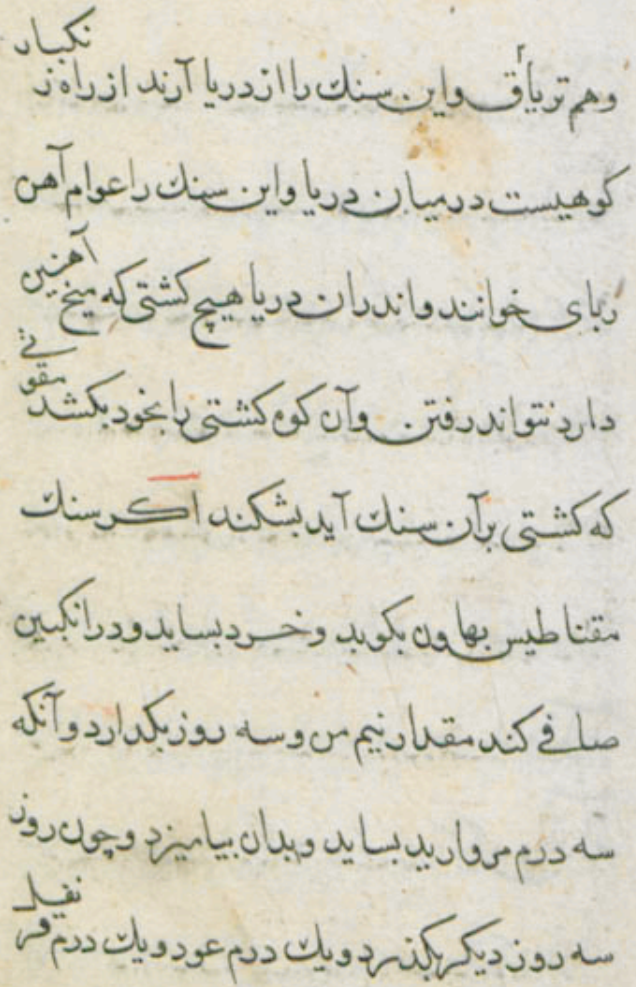 وهم ترياق واين سنك را از دريا آرند از راه زنكبار
كوهيست درميان دريا واين سنك را عوام آهن
رباى خوانند واندران دريا هيچ كشتى كه ميخ آهنين
دارد نتواند رفتن وآن كوه كشتى را بخود بكشد
كه كشتى برآن سنك آيد بشكند اكر سنك
مقناطيس بهاون بكوبد وخرد بسايد ودر انكبين
صافى كند مقدار نيم من وسه روز بكدارد وآنكه
سه درم مرواريد بسايد وبدان بياميزد وچون روز
سه روز ديكر بكذرد ويك درم عود ويك درم قرنفيل